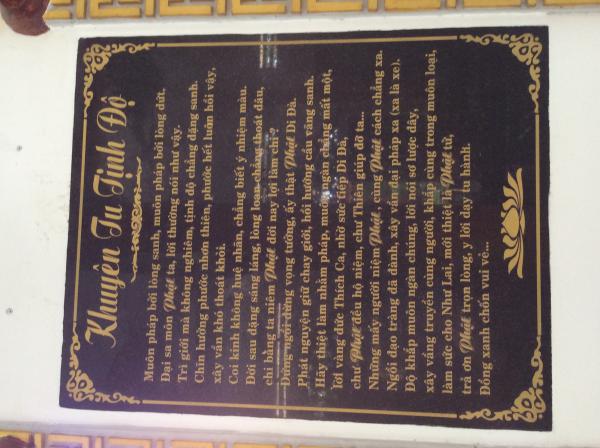 Khuyên Tu Tịnh Độ
Muôn pháp bởi lòng sanh, muôn pháp bởi lòng dứt.
Đại sa môn Phật ta, lời thường nói như vậy.
Trì giới mà không nghiêm, tịnh độ chẳng đặng sanh.
Chỉn hưởng phước nhơn thiên, phước hết luân hồi vậy,
xây vần khó thoát khỏi.
Coi kinh không huệ nhãn, chẳng biết ý nhiệm mầu.
Đời sau dặng sáng láng, lòng loạn chẳng thoát đâu,
chi bằng ta niệm Phật đời nay lợi làm chi?
Đừng ngồi đừng vọng tưởng, ấy thật Phật Di Đà.
Phát nguyện giữ chay giới, hồi hướng cầu vãng sanh.
Hãy thiệt làm nhằm pháp, muôn ngàn chẳng mất một,
lời vàng đức Thích Ca, nhờ sức tiếp Di Đà,
chư Phật đều hộ niệm, chư Thiên giúp đỡ ta...
Những mấy người niệm Phật, cùng Phật cách chẳng xa.
Ngồi đạo tràng đã đành, xây vần cái pháp xa (xa là xe).
Độ khắp muôn ngàn chúng, lời nói sơ lược đây,
xây vãng truyền cùng người, khắp cùng trong muôn loại,
làm sức cho Như Lai, mới thiệt là Phật tử,
trả ơn Phật trọn lòng, y lời dạy tu hành.
Đồng xanh chốn vui vẻ...